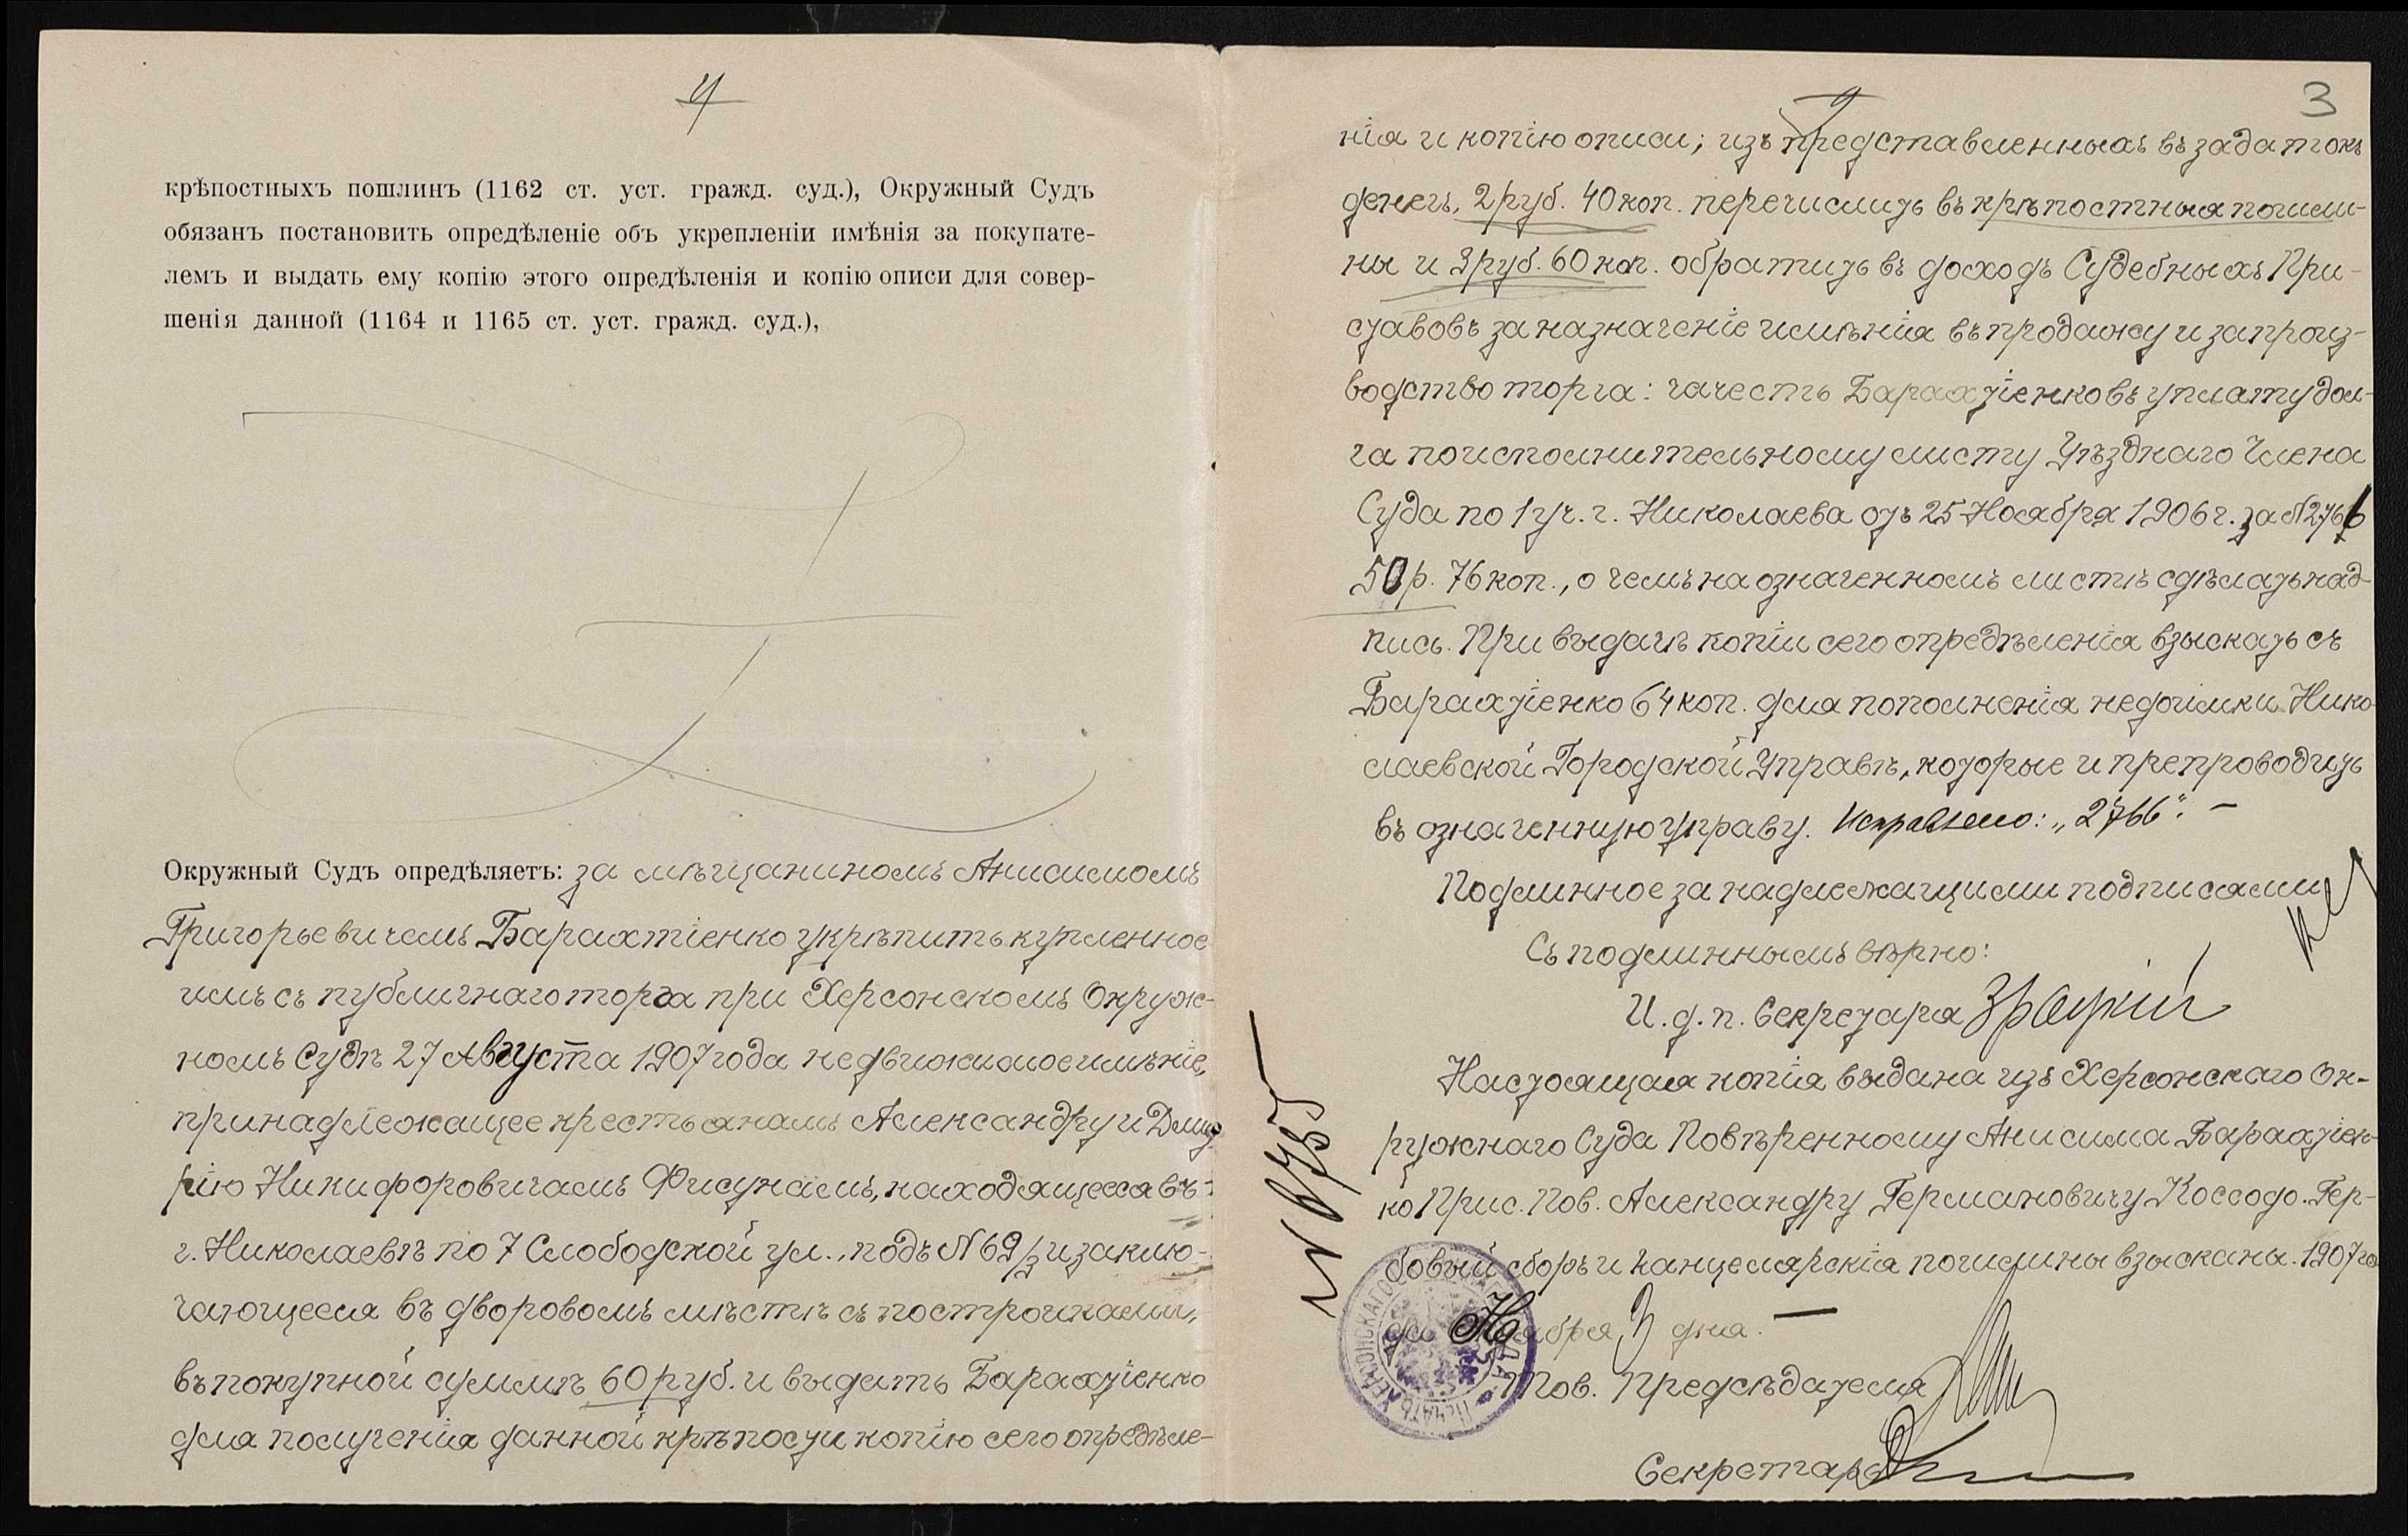 4
крѣпостныхъ пошлинъ (1162 ст. уст. гражд. суд.), Окружный Судъ
обязанъ постановить опредѣленіе объ укрепленіи имѣнія за покупате-
лемъ и выдать ему копію этого опредѣленія и копію описи для совер-
шенія данной (1164 и 1165 ст. уст. гражд. суд.),
Окружный Судъ опредѣляетъ: за мѣщаниномъ Анисимомъ
Григорьевичемъ Барахтіенко укрѣпить купленное
имъ съ публичнаго торга при Херсонскомъ Окруж-
номъ Судѣ 27 Августа 1907 года недвижимое имѣніе,
принадлежащее крестьянамъ Александру и Дмит-
рію Никифоровичамъ Фисунамъ, находящееся въ
г. Николаевѣ по 7 Слободской ул., подъ N 69/3 и заклю-
чающееся въ дворовомъ мѣстѣ съ постройками,
въ покупной суммѣ 60 руб. и выдать Барахтіенко
для полученія данной крѣпости копію сего опредѣле-
3
нія и копію описи; изъ представленныхъ въ задатокъ
денегъ, 2 руб. 40 коп. перечислить въ крѣпостныя пошли-
ны и 3 руб. 60 коп. обратить въ доходъ Судебныхъ При-
ставовъ за назначеніе имѣнія въ продажу и за произ-
водство торга: зачесть Барахтіенко въ уплату дол-
га по исполнительному листу Уѣзднаго Члена
Суда по 1 уч. г. Николаева отъ 25 Ноября 1906 г. за N 2766
50 р. 76 коп., о чемъ на означенномъ листѣ сдѣлать над-
пись. При выдачѣ копіи сего опредѣленія взыскать съ
Барахтіенко 64 коп. для пополненія недоимки Нико-
лаевской Городской Управѣ, которые и препроводить
въ означенную управу. Исправлено: „2766". —
Подлинное за надлежащими подписями
Съ подлиннымъ вѣрно:
И. д. п. Секретаря
Настоящая копія выдана изъ Херсонскаго Ок-
ружнаго Суда Повѣренному Анисима Барахтіен-
ко Прис. Пов. Александру Германовичу Коссодо. Гер-
бовый сборъ и канцелярскія пошлины взысканы. 1907 го
да Ноября 3 дня. —
Тов. Предсѣдателя
Секретарь